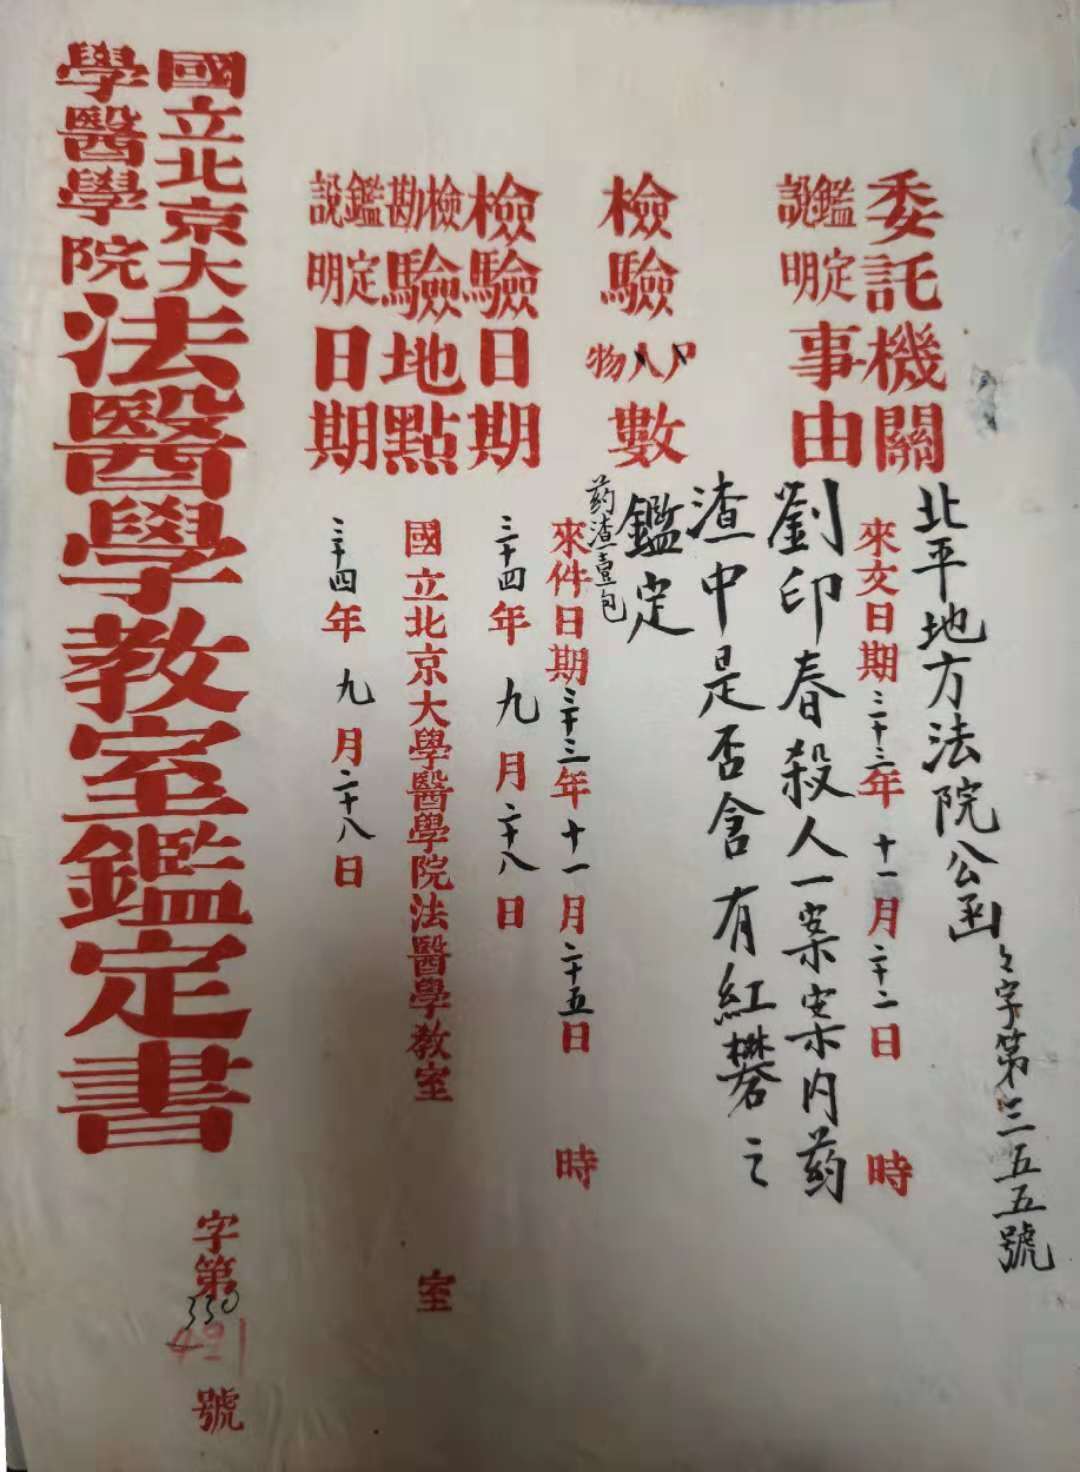 委託機關 北平地方法院公函 字第三五五號
來文日期三十三年十一月二十二日 時
鑑定說明事由 劉印春殺人一案案內药
渣中是否含有紅礬之
鑑定
檢驗尸人物數 药渣壹包
來件日期三十三年十一月二十五日 時
檢驗日期 三十四年九月二十八日
檢驗勘地點 國立北京大學醫學院法醫學教室 室
鑑定說明日期 三十四年九月二十八日
國立北京大學醫學院法醫學教室鑑定書 字第330 421號